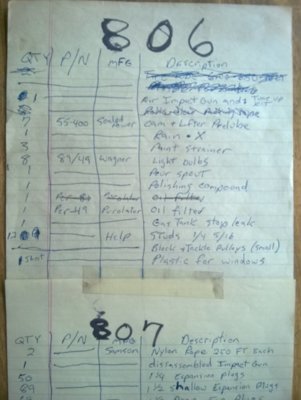 806
QTY P/N MFG Description
1 Air Impact Gun and Tune up kit
1 55-400 Sealed Power Cam & Lifter Prelube
1 Rain • X
3 Paint strainer
8 89/49 Wagner Light bulbs
1 Pour spout
1 Polishing compound
1 Per-49 Purolator Oil filter
1 Gas Tank stop leak
12 Help Studs 1/4 5/16
Block & Tackle Pulleys (small)
1 sheet Plastic for windows
807
QTY P/N MFG Description
2 Samson Nylon Rope 250 FT. Each
1 disassembled Impact Gun
50 1 1/4 Expansion plugs
89 1 1/2 Shallow Expansion Plugs